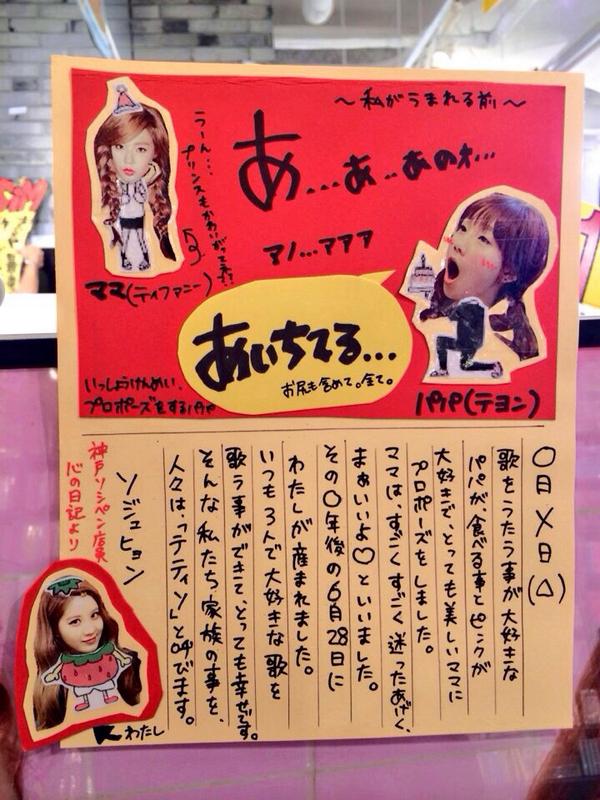 ～私がうまれる前～
あ...あ..あのォ...
アノ...アアア
うーん...
プリンスもかわいがって
ママ(ティファニー)
あいちてる...
お尻も含めて。全て。
いっしょうけんめい、
プロポーズをするパパ
パパ(テヨン)
〇月×日(△)
歌をうたう事が大好きな
パパが、食べる事とピンクが
大好きで、とっても美しいママに
プロポーズをしました。
ママは、すごくすごく迷ったあげく、
まぁいいよ♡といいました。
その〇年後の6月28日に
わたしが産まれました。
いつも3人で大好きな歌を
歌う事ができて、とっても幸せです。
そんな私たち家族の事を、
人々は、「テティソ」と呼びます。
ソジュヒョン
神戸ソシペン店員
心の日記より
わたし